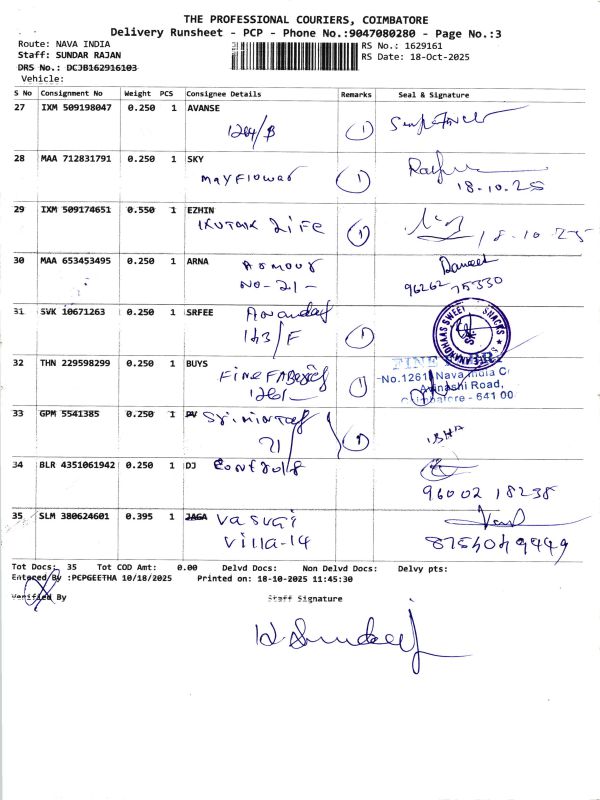 THE PROFESSIONAL COURIERS, COIMBATORE
Delivery Runsheet - PCP - Phone No.:9047080280 - Page No.:3
Route: NAVA INDIA
RS No.: 1629161
Staff: SUNDAR RAJAN
RS Date: 18-Oct-2025
DRS No.: DCJB162916103
Vehicle:
S No Consignment No Weight PCS Consignee Details Remarks Seal & Signature
27 IXM 509198047 0.250 1 AVANSE
1264/B 1
28 MAA 712831791 0.250 1 SKY
Mayflower 1
18.10.25
29 IXM 509174651 0.550 1 EZHIN
Life 1 18.10.25
30 MAA 653453495 0.250 1 ARNA
Armour
NO-21- 96262 75330
31 SVK 10671263 0.250 1 SRFEE
Anandas
143/F 1
SREE ANANDHAAS SWEET SNACKS
32 THN 229598299 0.250 1 BUYS
Fine Fabrics
1261 1
No.1261 Nava India
Avinashi Road,
Coimbatore - 641 00
33 GPM 5541385 0.250 1 PV
71 1
34 BLR 4351061942 0.250 1 DJ
96002 18238
35 SLM 380624601 0.395 1 JAGA Vasvai
Villa-14 8754049449
Tot Docs: 35 Tot COD Amt: 0.00 Delvd Docs: Non Delvd Docs: Delvy pts:
Entered By :PCPGEETHA 10/18/2025 Printed on: 18-10-2025 11:45:30
Verified By Staff Signature